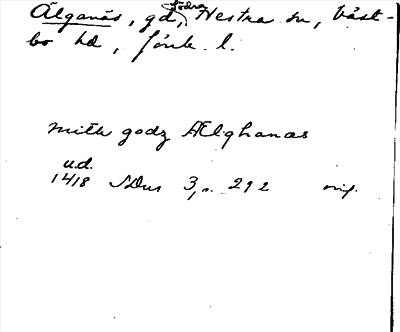 Älganäs, gd, Södra Hestra sn, Väst-
bo hd, Jönk. l.
mith godz Ælghanas
u.d.
1418 SDns 3, s. 292 orig.